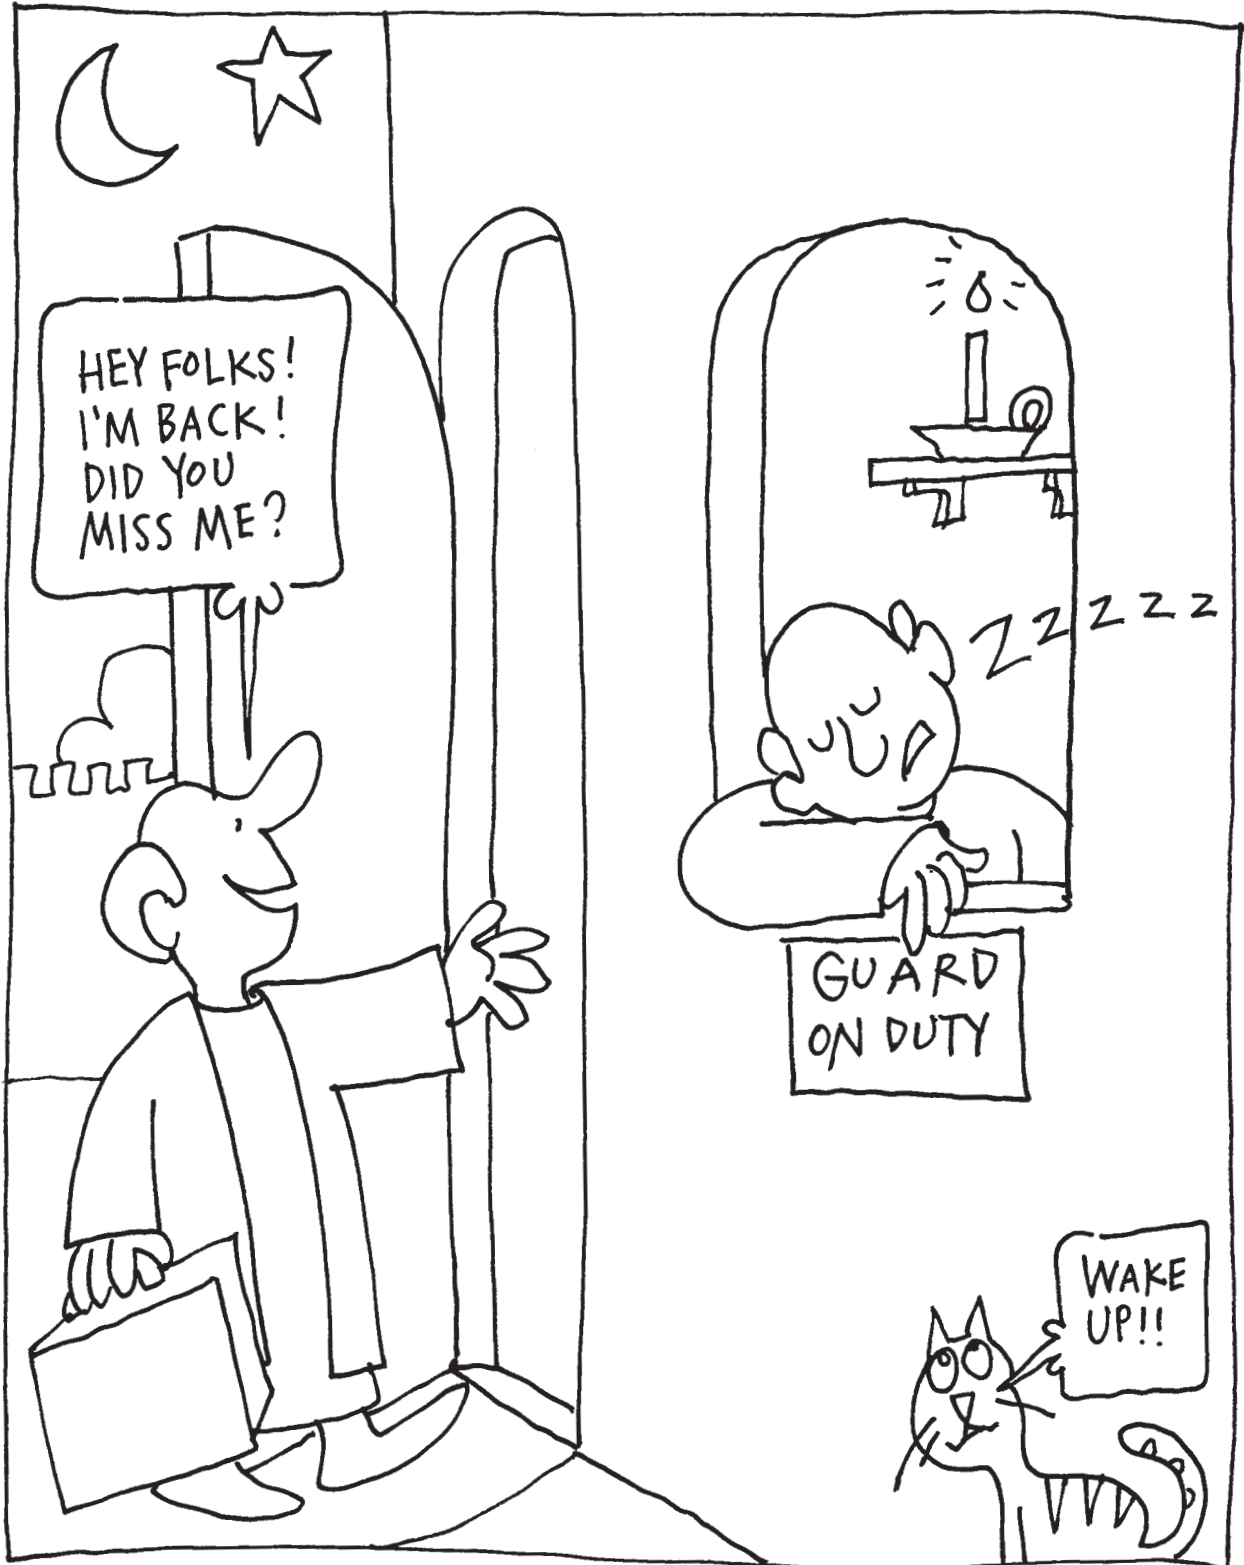 HEY FOLKS!
I'M BACK!
DID YOU
MISS ME?
ZZZZZ
GUARD
ON DUTY
WAKE
UP!!